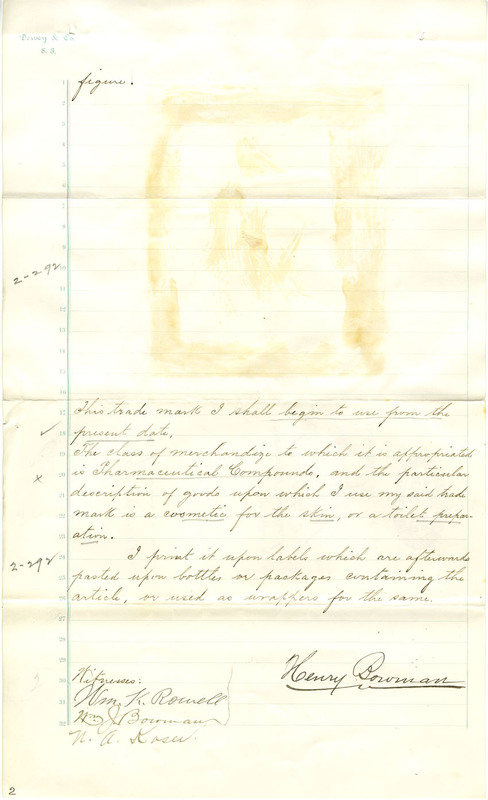 Dewey & Co
S. F.
figure.
2-292
This trade mark I shall begin to use from the
present date.
The class of merchandize to which it is appropriated
is Pharmaceutical Compounds, and the particular
description of goods upon which I use my said trade
mark is a cosmetic for the skin, or a toilet prepar-
ation.
2-292
I print it upon labels which are afterwards
pasted upon bottles or packages containing the
article, or used as wrappers for the same.
Henry Bowman
Witnesses:
Wm. K. Rowell
Wm J Bowman
N. A. Koser.
2
1
2
3
4
5
6
7
8
9
10
11
12
13
14
15
16
17
18
19
20
21
22
23
24
25
26
27
28
29
30
31
32